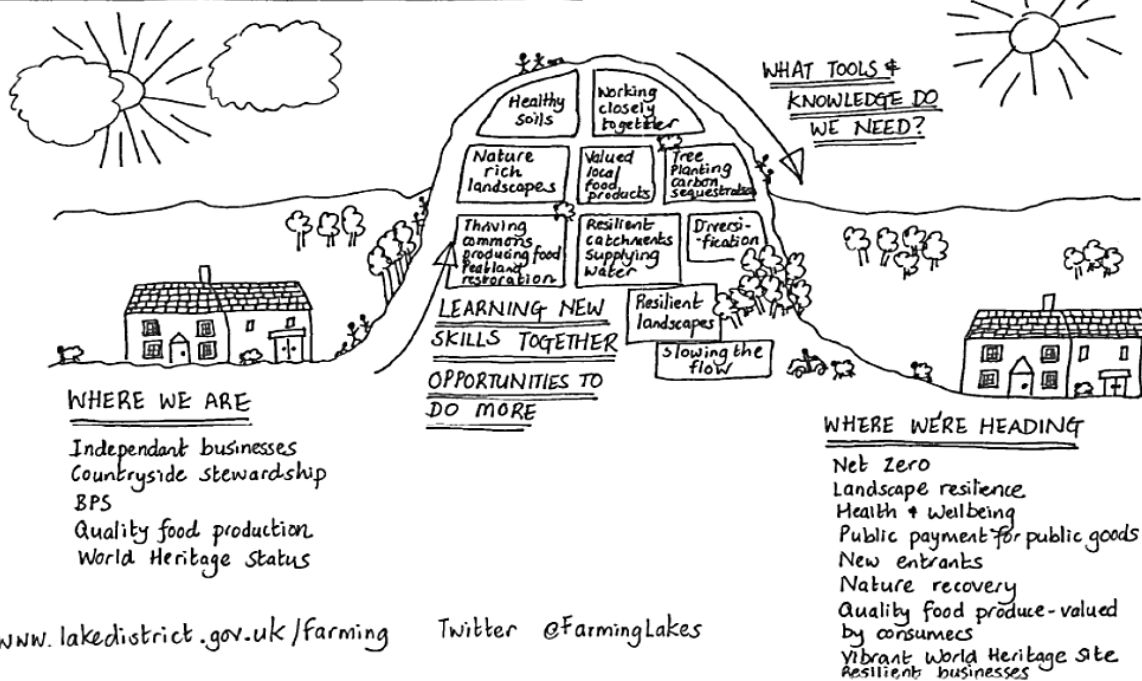 WHAT TOOLS &
KNOWLEDGE DO
WE NEED?
Healthy
soils
Working
closely
together
Nature
rich
landscapes
Valued
local
food
products
Tree
Planting
carbon
sequestration
Thriving
commons
producing food
Peatland
restoration
Resilient
catchments
Supplying
water
Diversi-
-fication
Resilient
landscapes
Slowing the
flow
LEARNING NEW
SKILLS TOGETHER
OPPORTUNITIES TO
DO MORE
WHERE WE ARE
Independant businesses
Countryside stewardship
BPS
Quality food production
World Heritage Status
WHERE WE'RE HEADING
Net Zero
Landscape resilience
Health & Wellbeing
Public payment for public goods
New entrants
Nature recovery
Quality food produce-valued
by consumers
Vibrant World Heritage Site
Resilient businesses
www.lakedistrict.gov.uk/farming Twitter @FarmingLakes